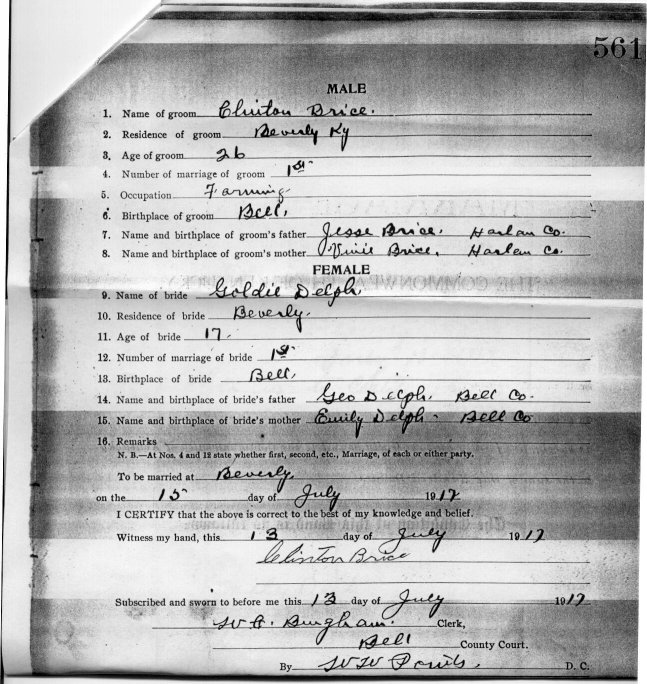 561
MALE
1. Name of groom Clinton Brice.
2. Residence of groom Beverly Ky
3. Age of groom 26
4. Number of marriage of groom 1st
5. Occupation Farming
6. Birthplace of groom Bell,
7. Name and birthplace of groom's father Jesse Brice, Harlan Co.
8. Name and birthplace of groom's mother Brice, Harlan Co.
FEMALE
9. Name of bride Goldie Delph,
10. Residence of bride Beverly.
11. Age of bride 17.
12. Number of marriage of bride 1st
13. Birthplace of bride Bell,
14. Name and birthplace of bride's father Geo Delph, Bell Co.
15. Name and birthplace of bride's mother Emily Delph - Bell Co
16. Remarks
N. B.—At Nos. 4 and 12 state whether first, second, etc., Marriage, of each or either party.
To be married at Beverly,
on the 15 day of July 1917
I CERTIFY that the above is correct to the best of my knowledge and belief.
Witness my hand, this 13 day of July 1917
Clinton Brice
Subscribed and sworn to before me this 13 day of July 1917
Bingham. Clerk,
Bell County Court.
By D. C.